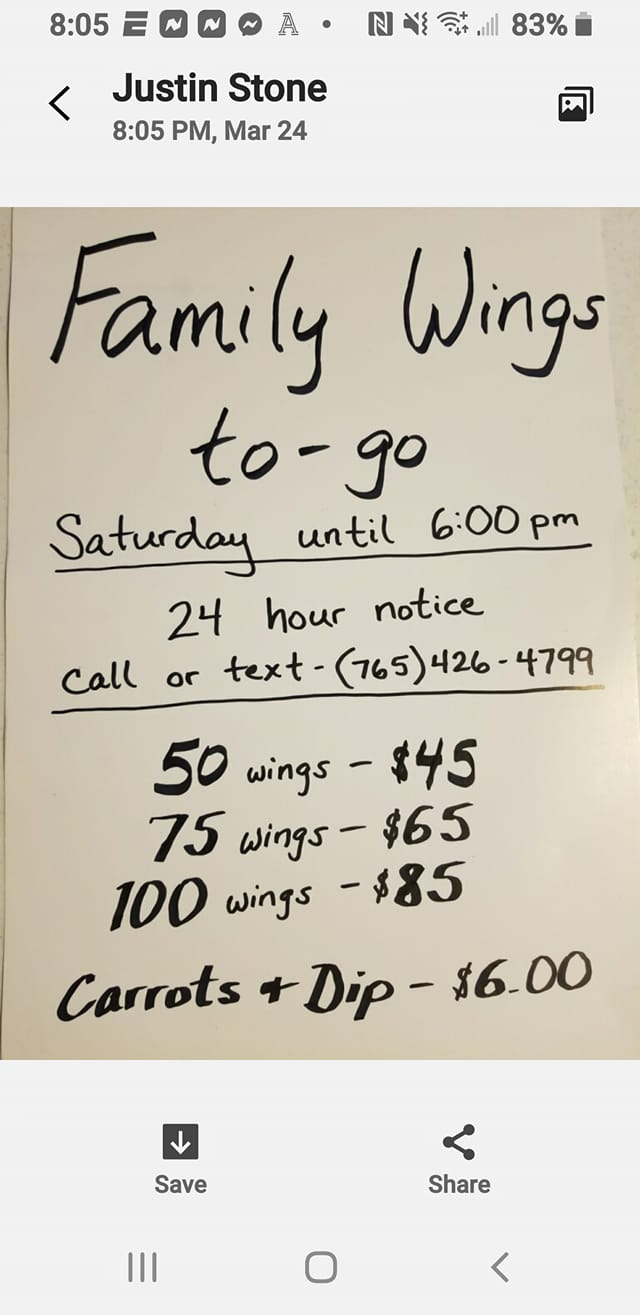 8:05 83%
Justin Stone
8:05 PM, Mar 24
Family Wings
to-go
Saturday until 6:00 pm
24 hour notice
Call or text - (765) 426-4799
50 wings - $45
75 wings - $65
100 wings - $85
Carrots + Dip - $6.00
Save Share